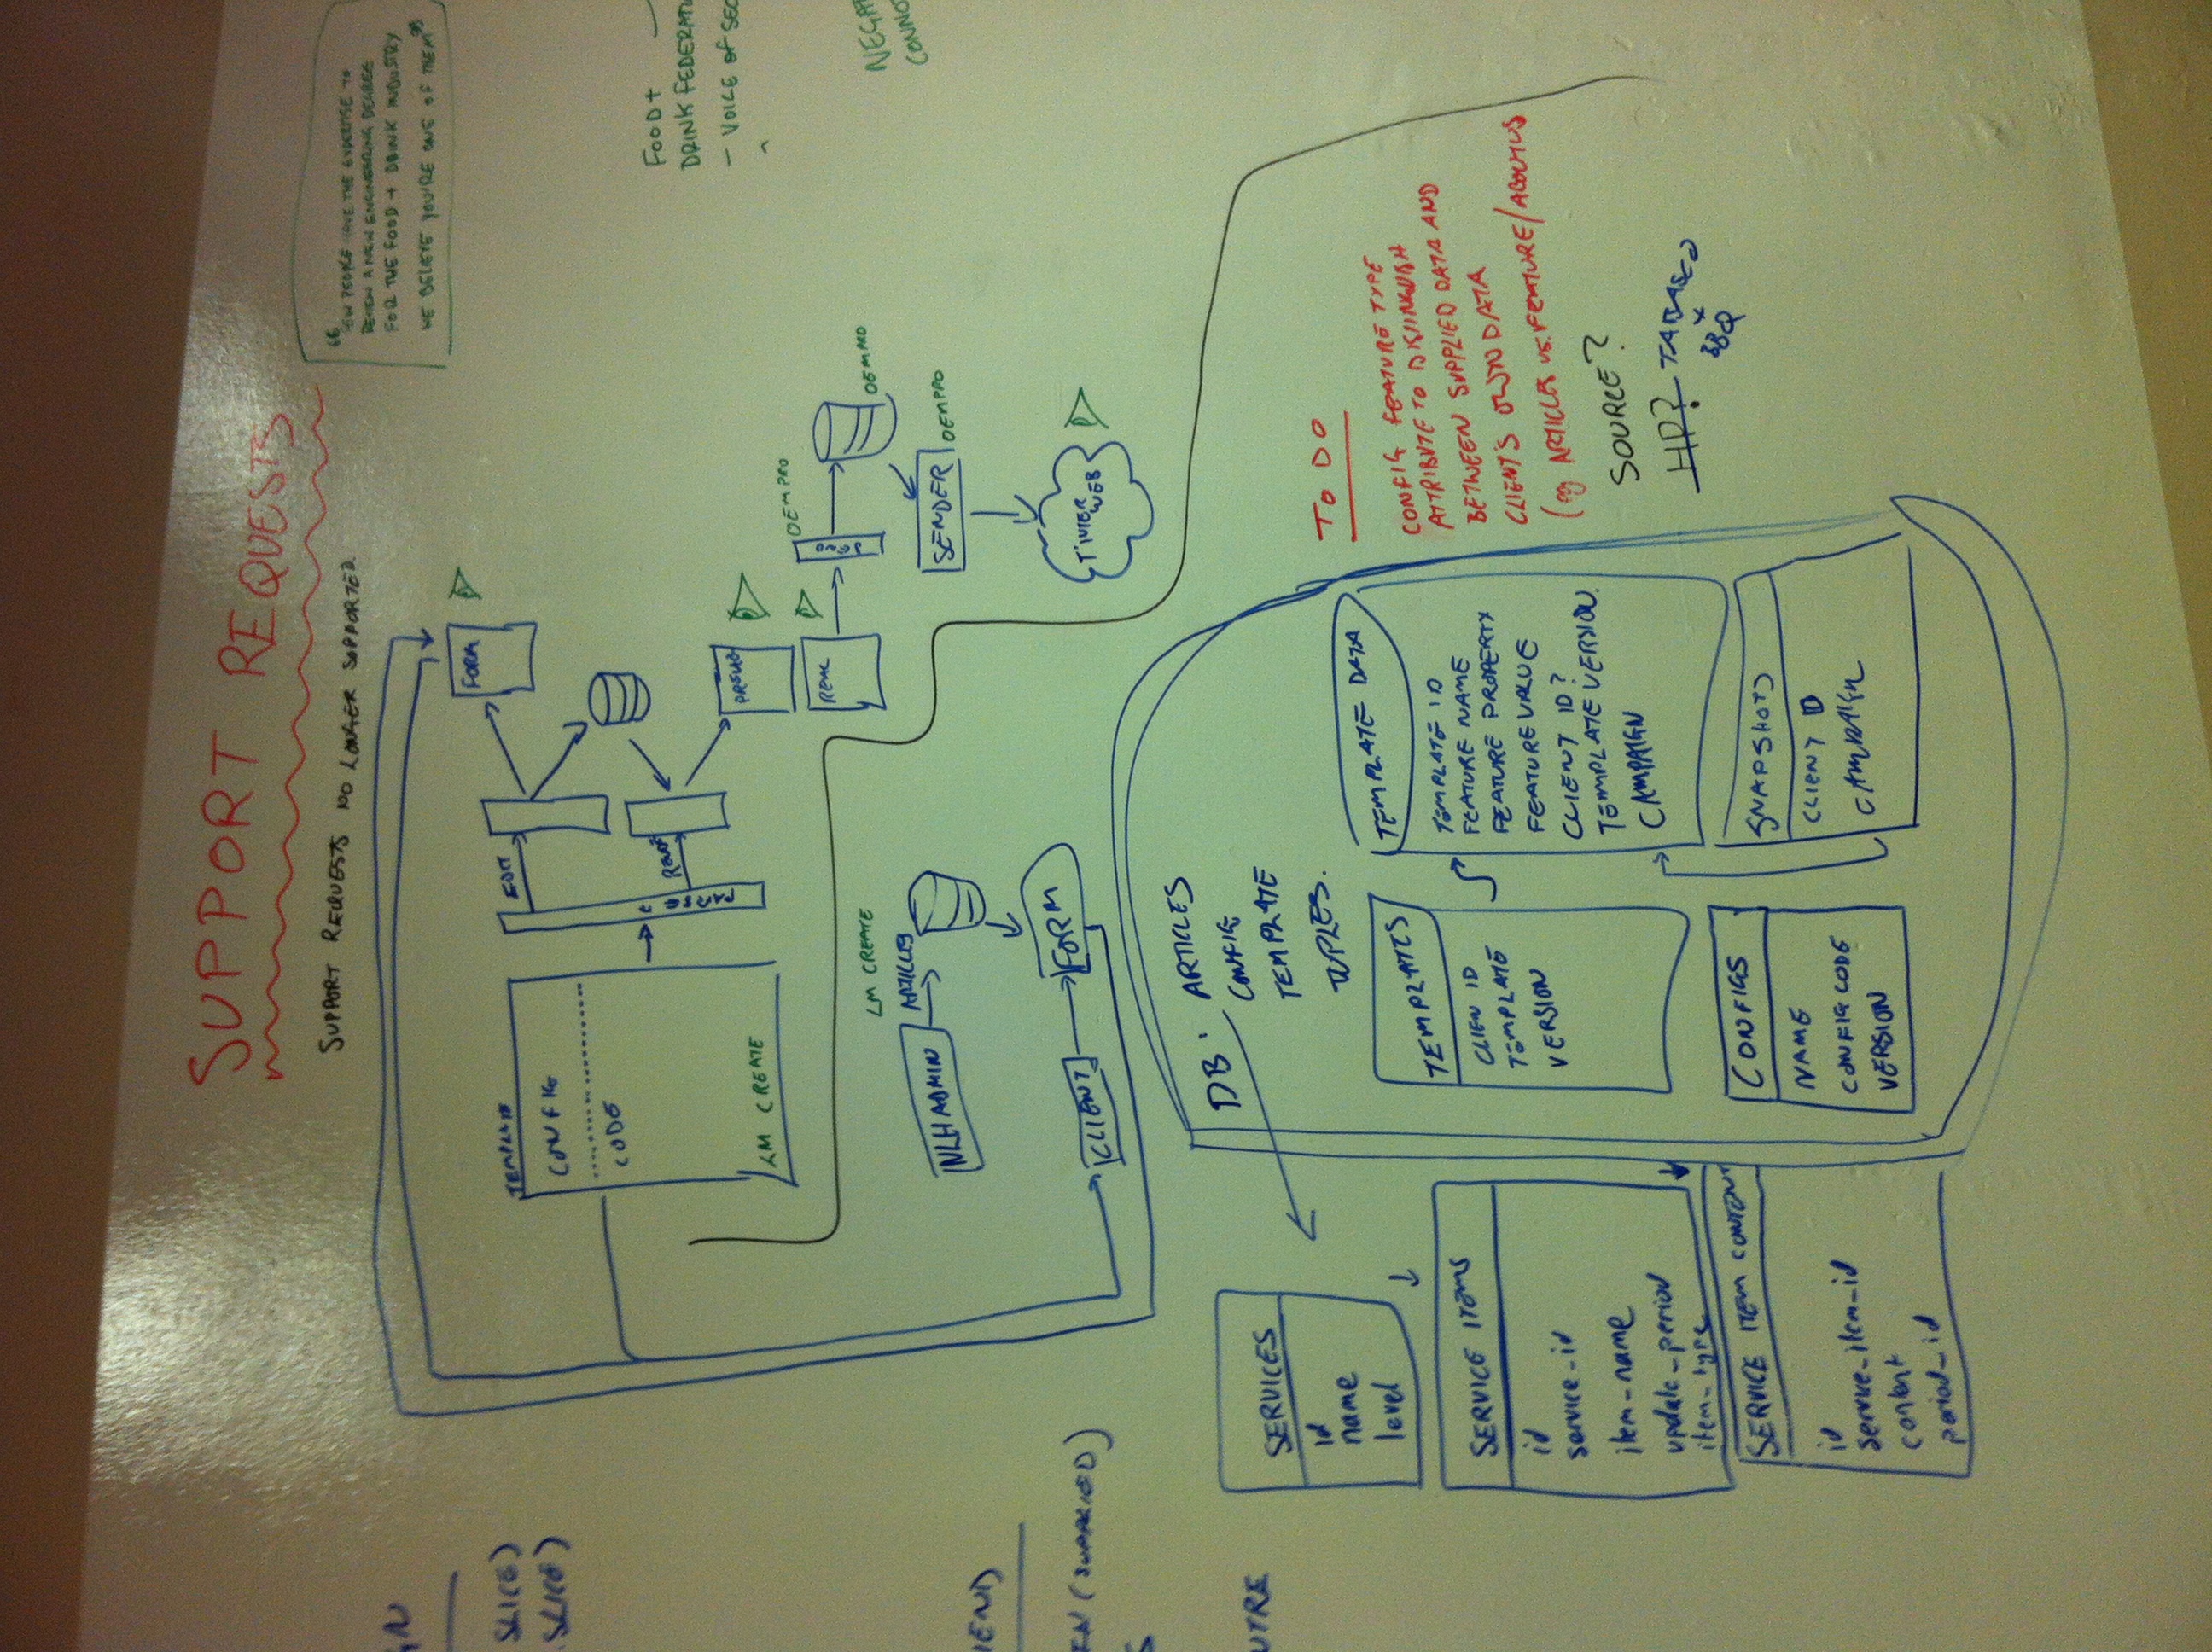 SUPPORT REQUESTS
SUPPORT REQUESTS NO LONGER SUPPORTED.
"FEW PEOPLE HAVE THE EXPERTISE TO
REVIEW A NEW ENGINEERING DEGREE
FOR THE FOOD + DRINK INDUSTRY
WE BELIEVE YOU'RE ONE OF THEM"
SLICE)
SLICE)
TEMPLATE
CONFIG
CODE
LM CREATE
PARSE
EDIT
FORM
PREVIEW
REAL
SEND
OEMPRO
OEMPRO
SENDER
OEMPRO
T'INTER
WEB
FOOD +
DRINK FEDERATI
- VOICE OF SEC
NEGA
CONNO
LM CREATE
NLH ADMIN
ARTICLES
CLIENT
FORM
IEND
(SUPPLIED)
UTRE
DB:
ARTICLES
CONFIG
TEMPLATE
TUPLES.
SERVICES
id
name
level
SERVICE ITEMS
id
service_id
item_name
update_period
item_type
SERVICE ITEM CONTENT
id
service_item_id
content
period_id
TEMPLATES
CLIEN ID
TEMPLATE
VERSION
TEMPLATE DATA
TEMPLATE ID
FEATURE NAME
FEATURE PROPERTY
FEATURE VALUE
CLIENT ID?
TEMPLATE VERSION.
CAMPAIGN
CONFIGS
NAME
CONFIG CODE
VERSION
SNAPSHOTS
CLIENT ID
CAMPAIGN
TO DO
CONFIG FEATURE TYPE
ATTRIBUTE TO DISTINGUISH
BETWEEN SUPPLIED DATA AND
CLIENT'S OWN DATA
(eg ARTICLES vs. FEATURE/ABOUT US
SOURCE?
HP? TABASCO
BBQ